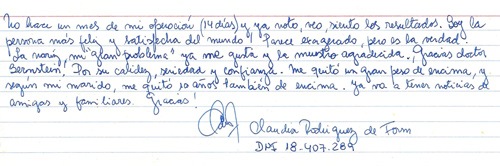 No hace un mes de mi operación (14 días) y ya noto, veo, siento los resultados. Soy la
persona más feliz y satisfecha del mundo! Parece exagerado, pero es la verdad.
La nariz, mi "gran problema" ya me gusta y la muestro agradecida. Gracias doctor
Bernstein, Por su calidez, seriedad y confianza. Me quitó un gran peso de encima, y
según mi marido, me quitó 10 años también de encima. Ya va a tener noticias de
amigas y familiares. Gracias!
Claudia Rodriguez de
DNI 18-407.289